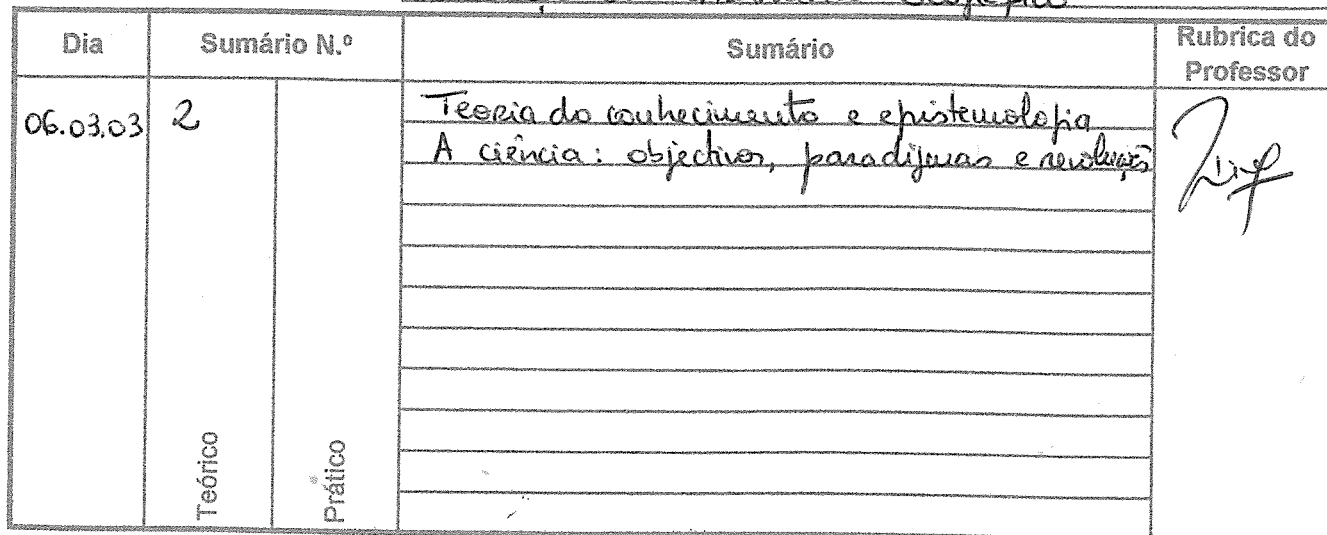 Dia
Sumário N.º
Sumário
Rubrica do Professor
06.03.03
2
Teoria do conhecimento e epistemologia
A ciência: objectivos, paradigmas e
Teórico
Prático